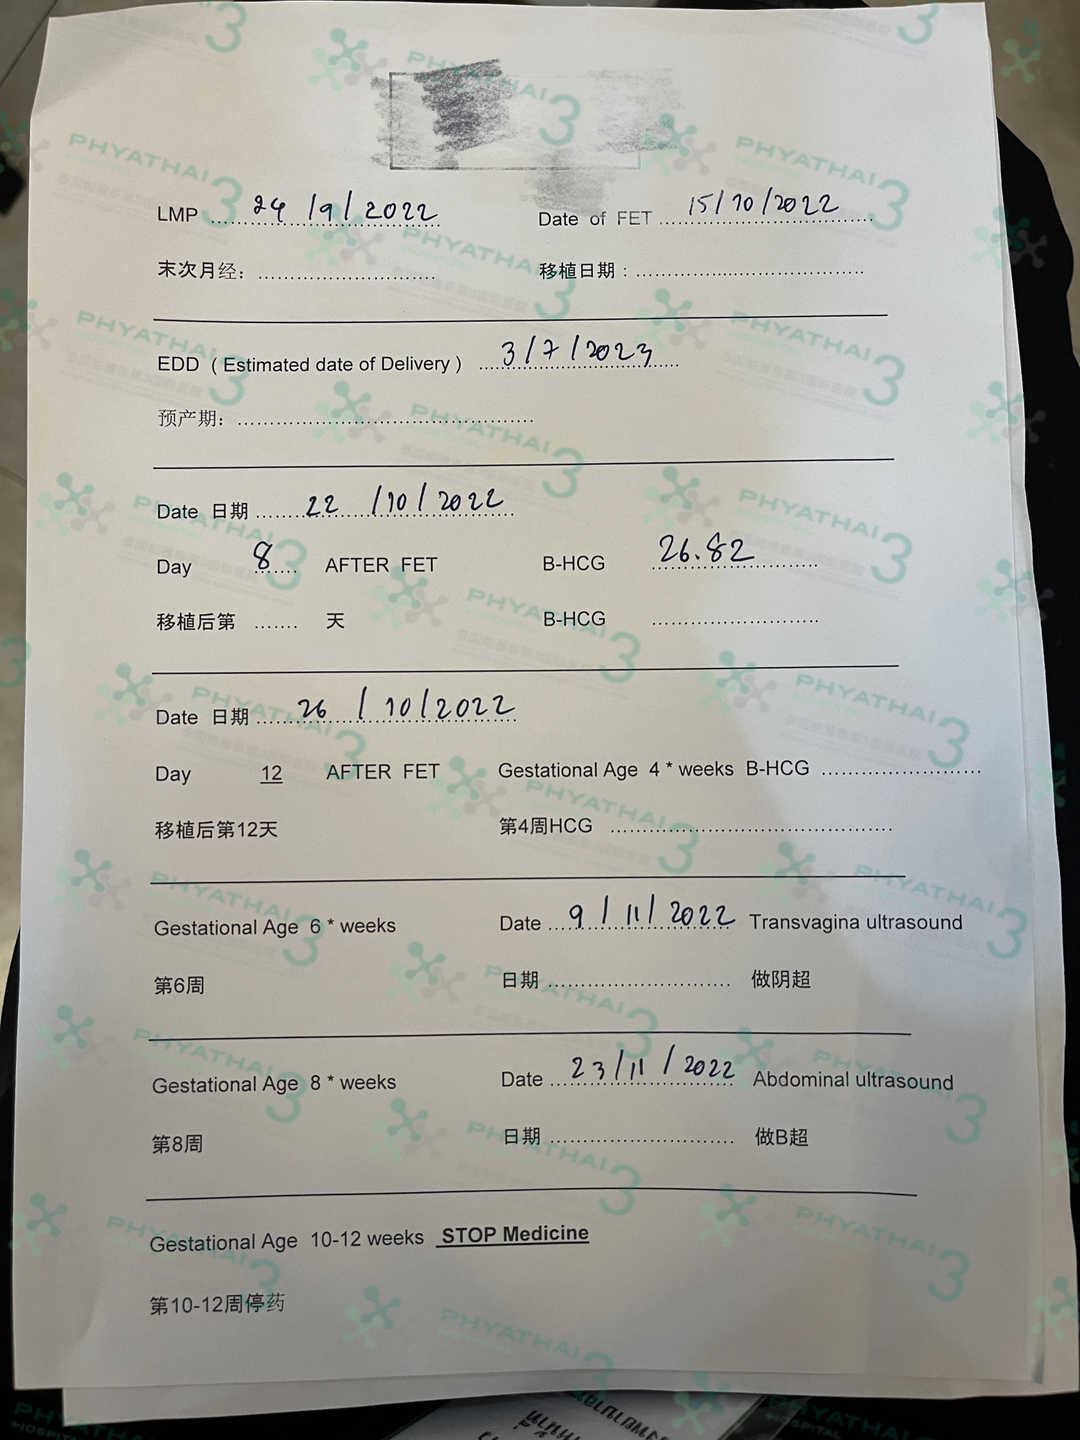 LMP ........ 24 /9/ 2022 Date of FET ........ 15/10/2022
末次月经: ........ 移植日期: ........
EDD ( Estimated date of Delivery ) ........ 3/7/2023
预产期: ........
Date 日期 ........ 22 /10/2022
Day 8 AFTER FET B-HCG 26.82
移植后第 ....... 天 B-HCG ........
Date 日期 ........ 26 / 10/2022
Day 12 AFTER FET Gestational Age 4 * weeks B-HCG ........
移植后第12天 第4周HCG ........
Gestational Age 6 * weeks Date ........ 9 / 11/ 2022 Transvagina ultrasound
第6周 日期 ........ 做阴超
Gestational Age 8 * weeks Date ........ 23/11 / 2022 Abdominal ultrasound
第8周 日期 ........ 做B超
Gestational Age 10-12 weeks STOP Medicine
第10-12周停药
PHYATHAI 3